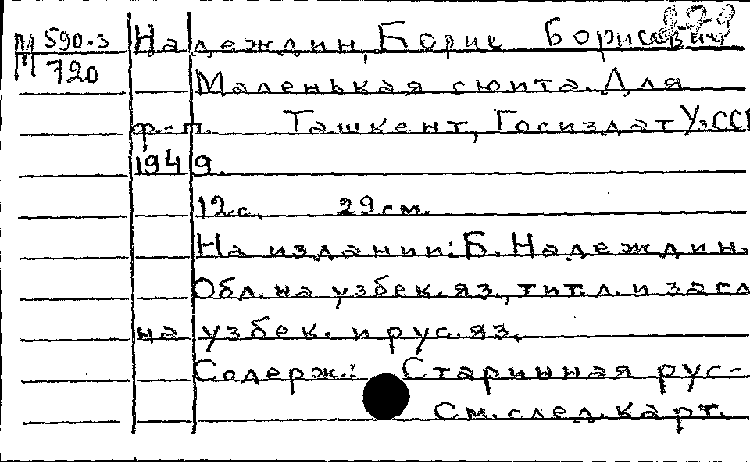 М 590-3
720
Надеждин, Борис Борисович
Маленькая сюита. Для
ф-п. Ташкент, Госиздат УзССР
1949.
12 с. 29 см.
На издании: Б. Надеждин.
Обл. на узбек. яз., тит. л. и загл
на узбек. и рус. яз.
Содерж.: Старинная рус-
См. след. карт.